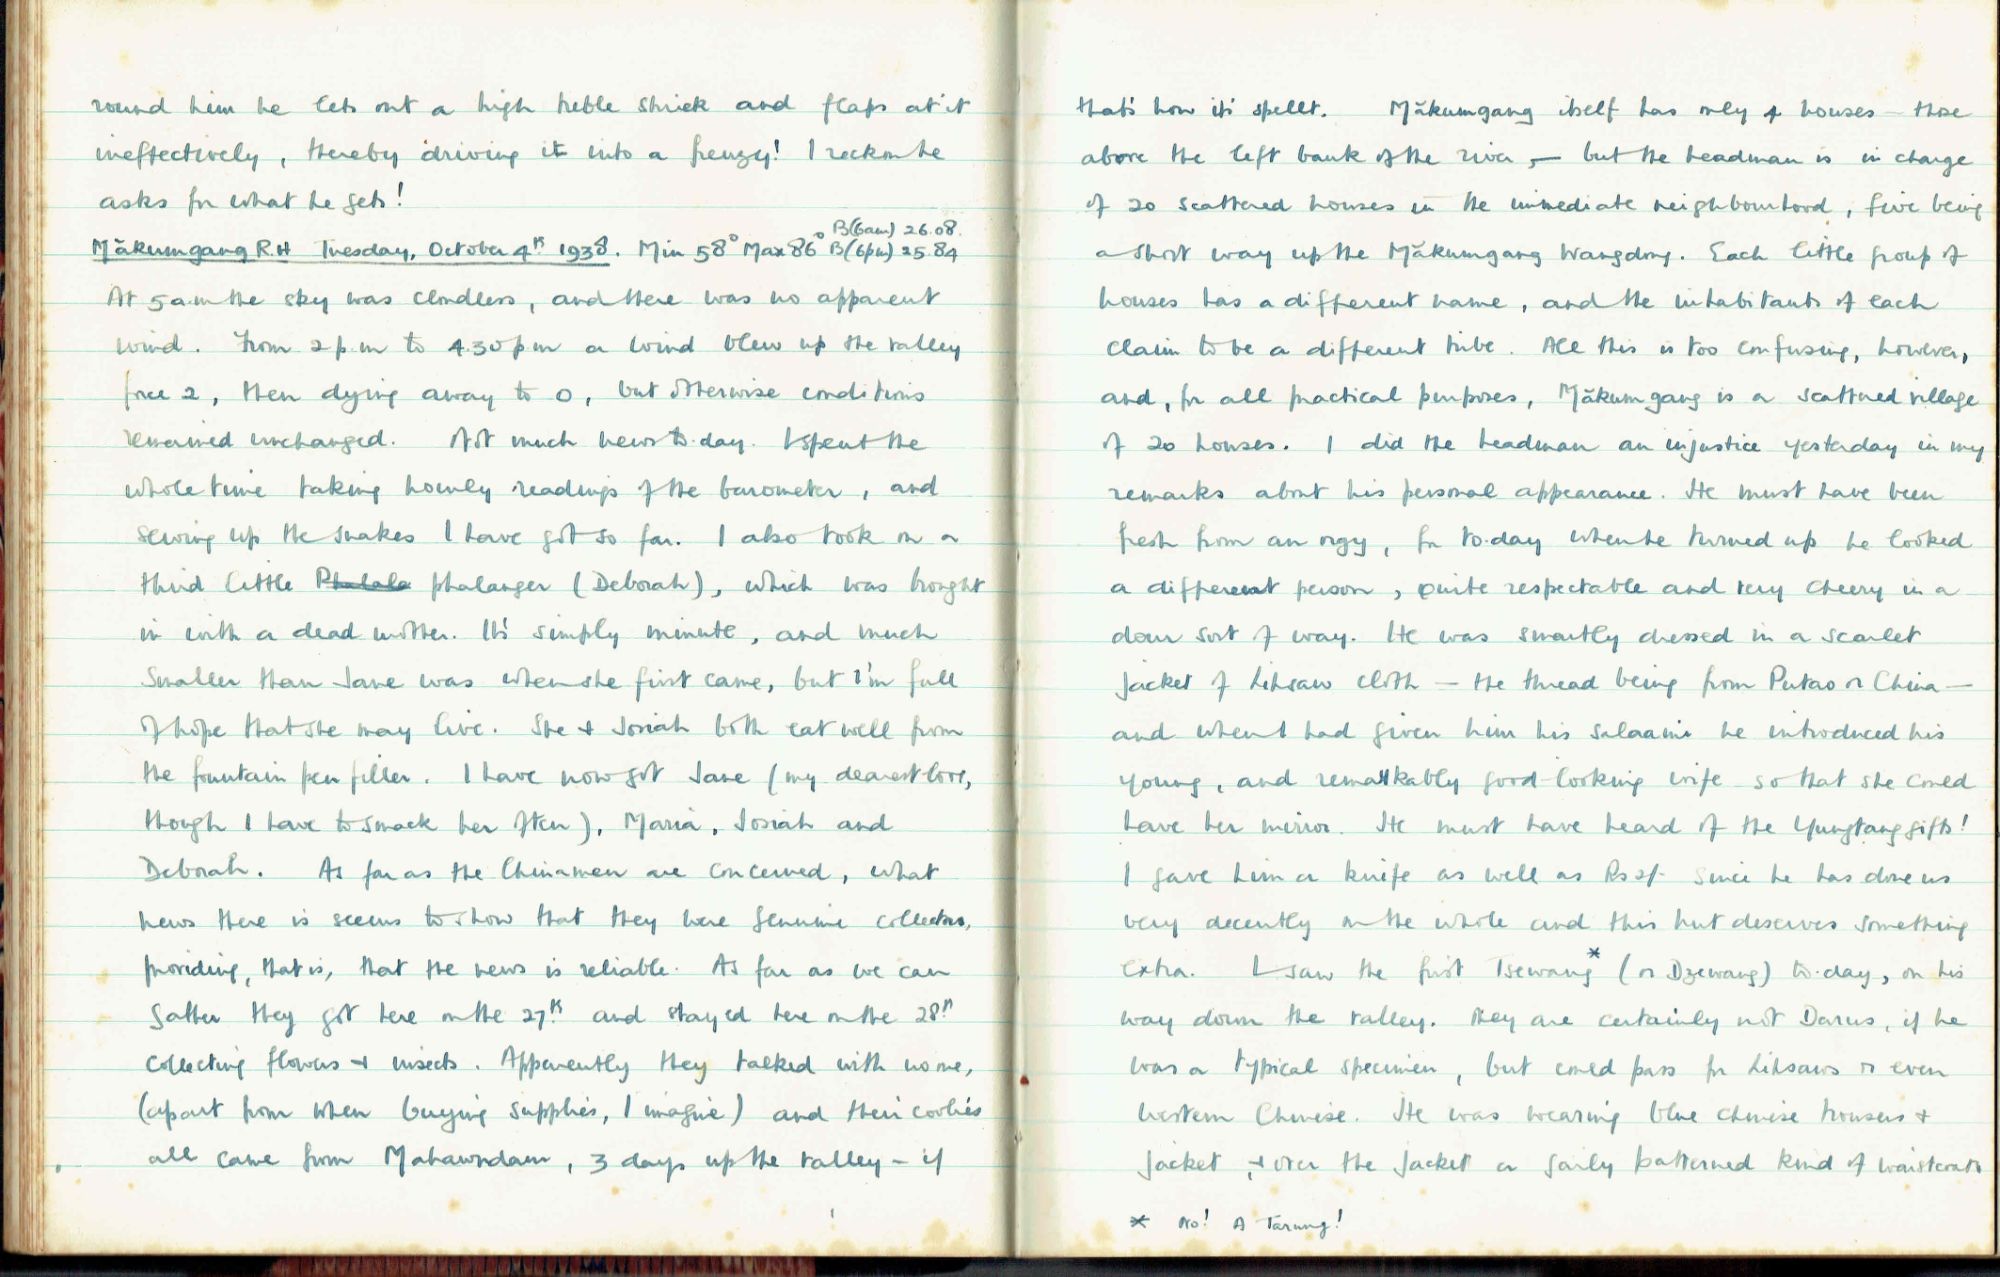 round him he lets out a high treble shriek and flaps at it
ineffectively, thereby driving it into a frenzy! I reckon he
asks for what he gets!
Măkumgang R.H Tuesday, October 4th 1938. Min 58° Max 86° B(6am) 26.08. B(6pm) 25.84
At 5 a.m the sky was cloudless, and there was no apparent
wind. From 2 p.m to 4.30 pm a wind blew up the valley
force 2, then dying away to 0, but otherwise conditions
remained unchanged. Not much news to-day. I spent the
whole time taking hourly readings of the barometer, and
sewing up the snakes I have got so far. I also took on a
third little Phalala phalanger (Deborah), which was brought
in with a dead mother. It's simply minute, and much
smaller than Jane was when she first came, but I'm full
of hope that she may live. She + Josiah both eat well from
the fountain pen filler. I have now got Jane (my dearest love,
though I have to smack her often), Maria, Josiah and
Deborah. As far as the Chinamen are concerned, what
news there is seems to show that they were genuine collectors,
providing, that is, that the news is reliable. As far as we can
gather they got here on the 27th and stayed here on the 28th
collecting flowers + insects. Apparently they talked with no one,
(apart from when buying supplies, I imagine) and their coolies
all came from Mahawndam, 3 days up the valley - if
that's how it's spellt. Măkumgang itself has only 4 houses - those
above the left bank of the river, - but the headman is in charge
of 20 scattered houses in the immediate neighbourhood, five being
a short way up the Măkumgang Wangdong. Each little group of
houses has a different name, and the inhabitants of each
claim to be a different tribe. All this is too confusing, however,
and, for all practical purposes, Măkumgang is a scattered village
of 20 houses. I did the headman an injustice yesterday in my
remarks about his personal appearance. He must have been
fresh from an orgy, for to-day when he turned up he looked
a different person, quite respectable and very cheery in a
dour sort of way. He was smartly dressed in a scarlet
jacket of Lihsaw cloth - the thread being from Putao or China -
and when I had given him his salaami he introduced his
young, and remarkably good-looking wife so that she could
have her mirror. He must have heard of the Yungtang gifts!
I gave him a knife as well as Rs 2/- since he has done us
very decently on the whole and this hut deserves something
extra. I saw the first Tsewang* (or Dzewang) to-day, on his
way down the valley. They are certainly not Darus, if he
was a typical specimen, but could pass for Lihsaws or even
western Chinese. He was wearing blue chinese trousers +
jacket, + over the jacket a gaily patterned kind of waistcoat
* No! A Tarung!